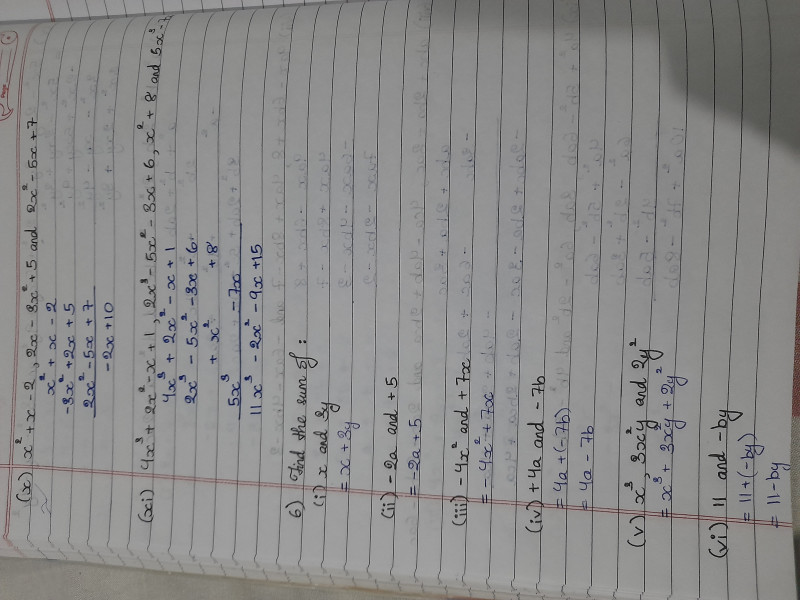 Page
(x) x² + x - 2, 2x - 3x² + 5 and 2x² - 5x + 7
x² + x - 2
-3x² + 2x + 5
2x² - 5x + 7
- 2x + 10
(xi) 4x³ + 2x² - x + 1, 2x³ - 5x² - 3x + 6, x² + 8 and 5x³ - 7x
4x³ + 2x² - x + 1
2x³ - 5x² - 3x + 6
+ x² + 8
5x³ - 7x
11x³ - 2x² - 9x + 15
6) Find the sum of :
(i) x and 3y
= x + 3y
(ii) -2a and +5
= -2a + 5
(iii) -4x² and +7x
= -4x² + 7x
(iv) +4a and -7b
= 4a + (-7b)
= 4a - 7b
(v) x³, 3x²y and 2y²
= x³ + 3x²y + 2y²
(vi) 11 and -by
= 11 + (-by)
= 11 - by